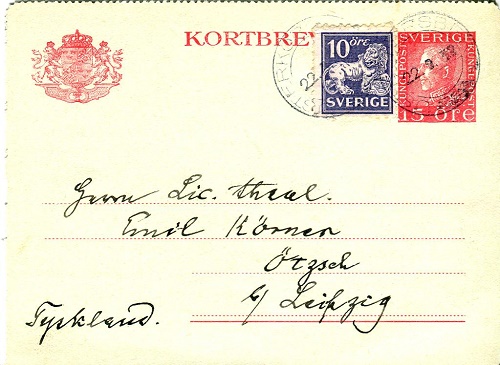 KORTBREV
10 öre
SVERIGE
SVERIGE
KUNGL POST
15 ÖRE
22. 2. 28
Herrn Lic. theol.
Emil Körner
Ötzsch
b/ Leipzig
Tyskland.